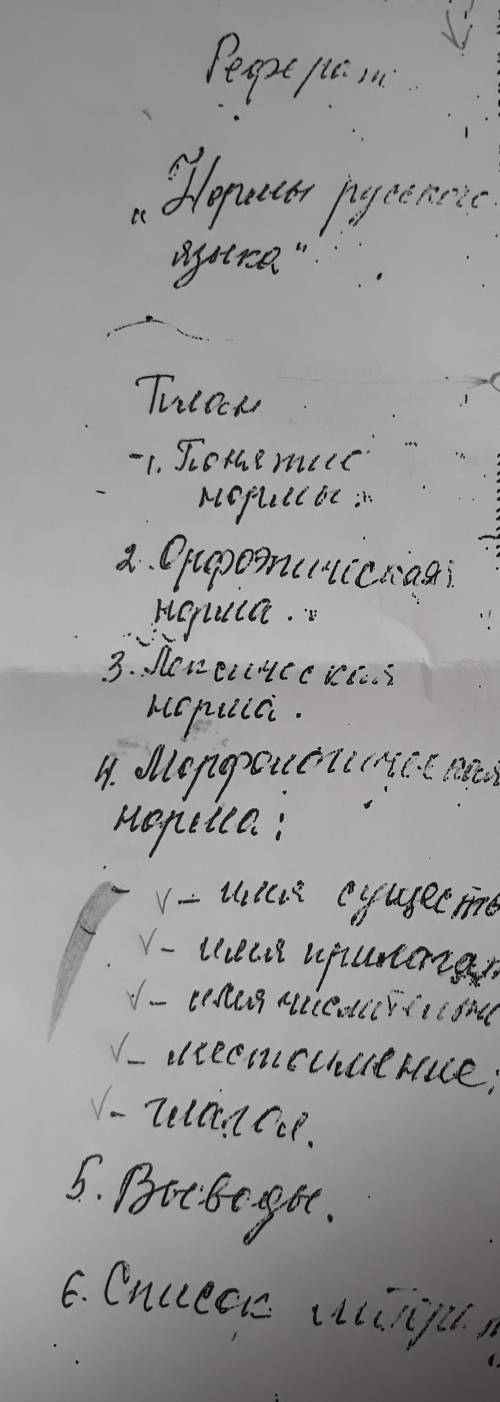 Реферат
"Нормы русского
языка"
План
1. Понятие
нормы.
2. Орфоэпическая
норма.
3. Лексическая
норма.
4. Морфологическая
норма:
√ - имя существ
√ - имя прилагат
√ - имя числительно
√ - местоимение;
√ - глагол.
5. Выводы.
6. Список литерат